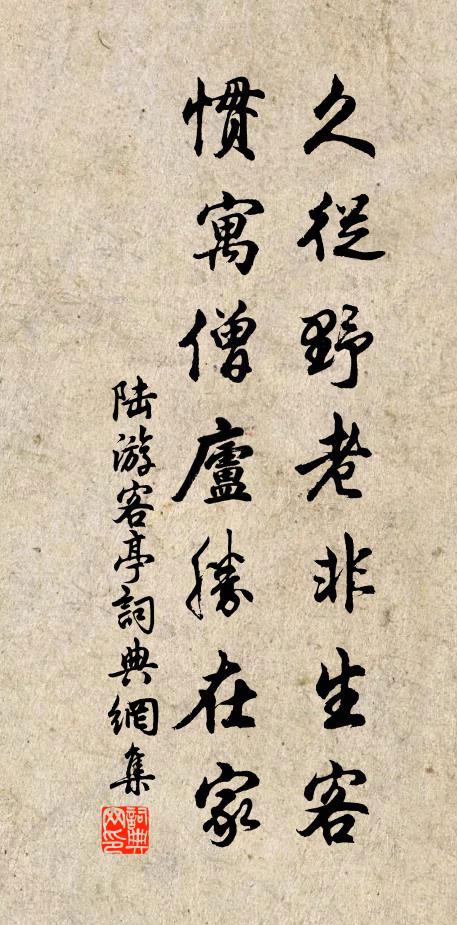 久從野老非生客
慣寓僧廬勝在家
陆游客亭詞典網集
詞典網印